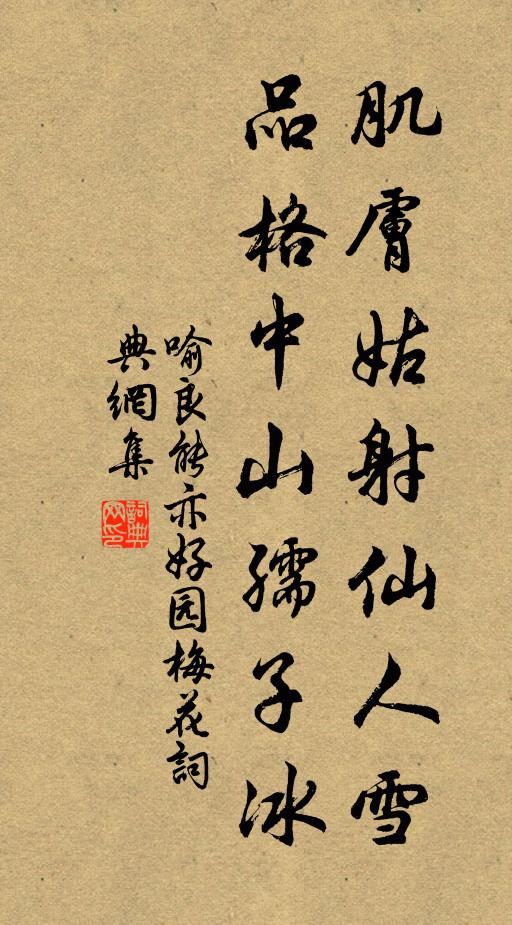 肌膚姑射仙人雪
品格中山孺子冰
喻良能亦好园梅花詞
典網集
詞典
网印